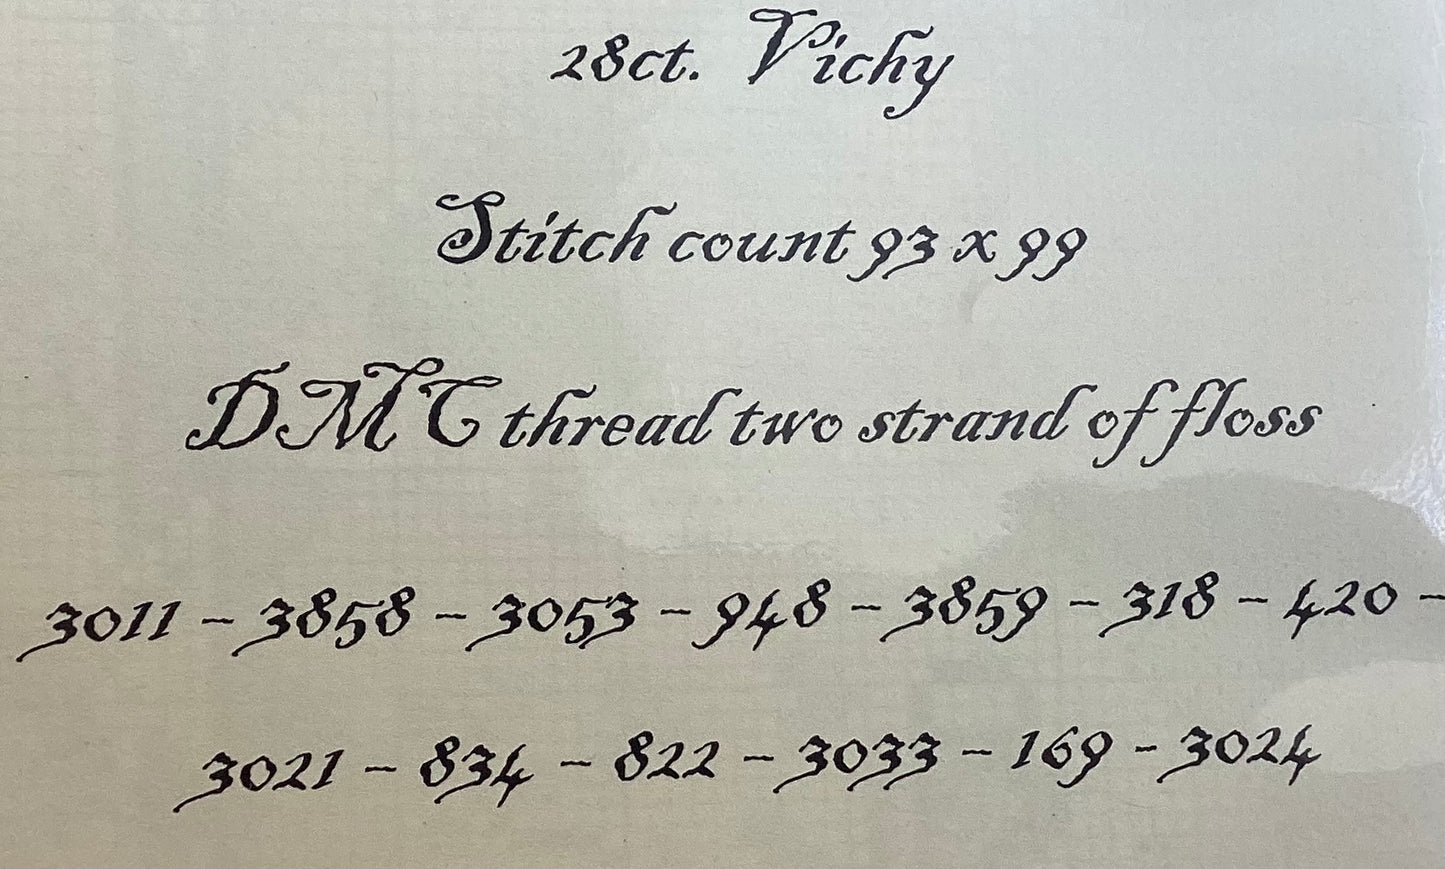 28ct. Vichy
Stitch count 93 x 99
DMC thread two strand of floss
3011 - 3858 - 3053 - 948 - 3859 - 318 - 420 -
3021 - 834 - 822 - 3033 - 169 - 3024